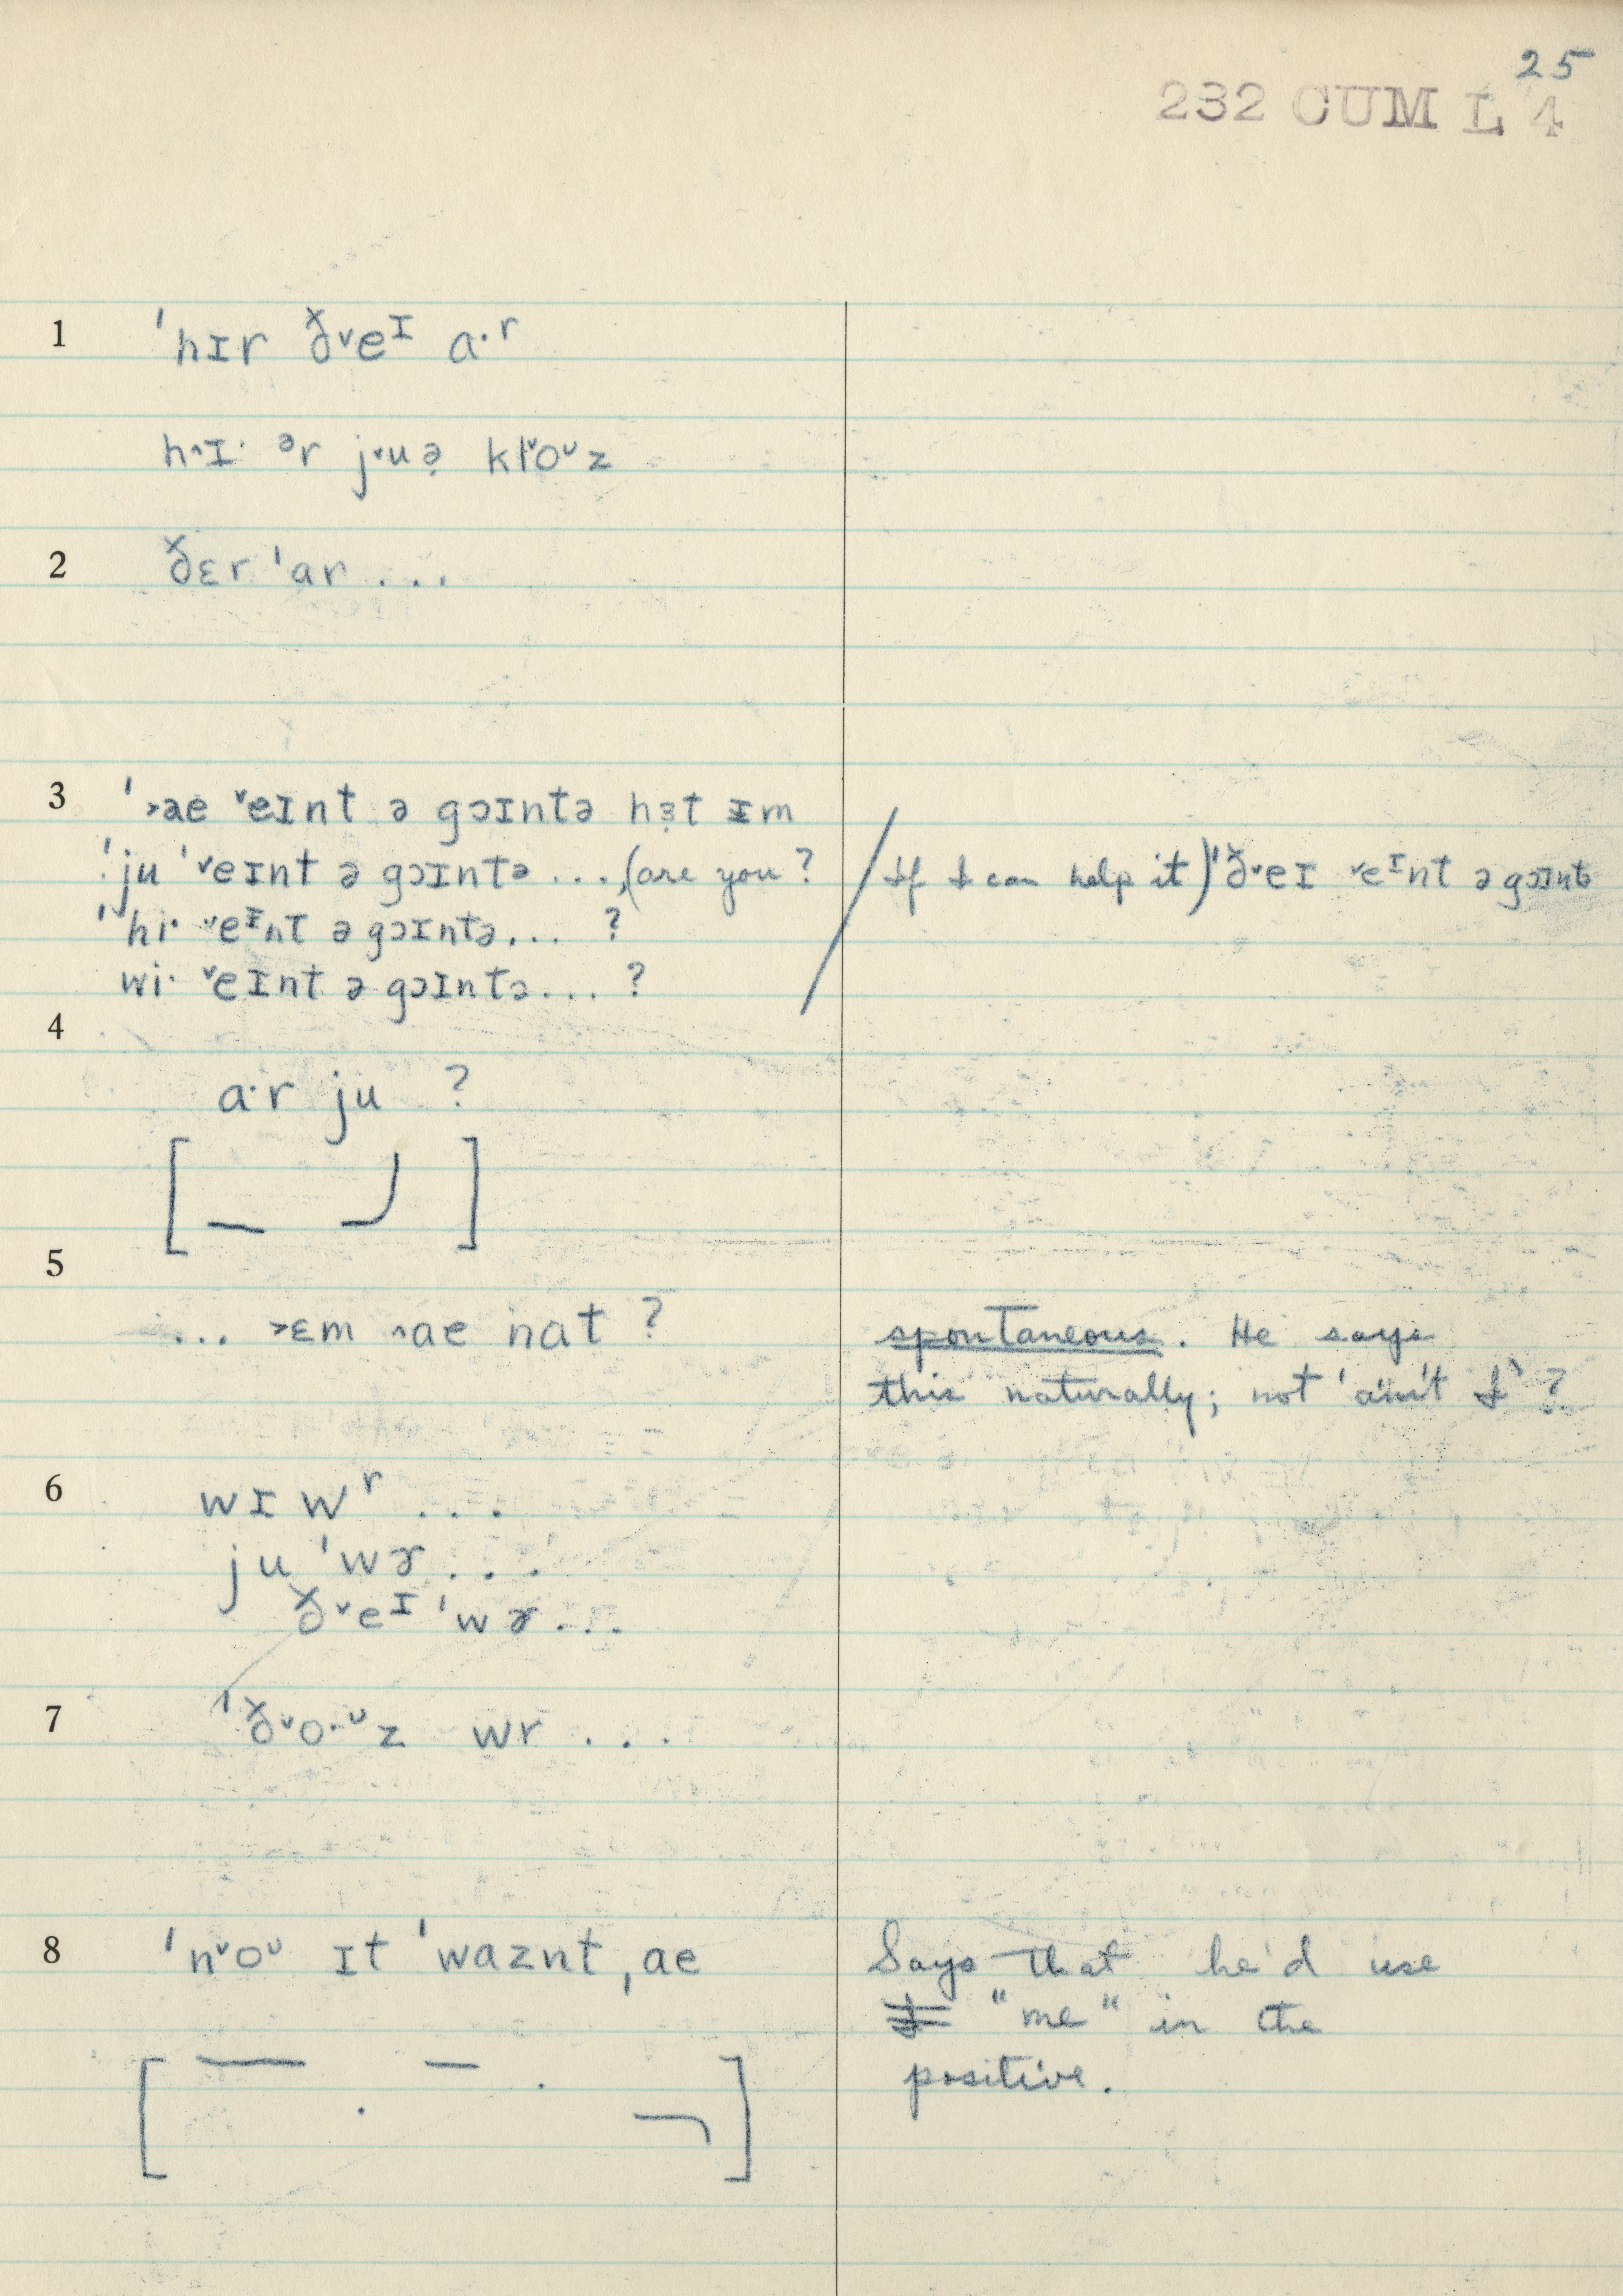 25
232 CUM L 4
1 ˈhɪr ð˅eᴵ a·ʳ
h^ɪ· ᵊr j˅uə̣ kɫ˅oᶷz
2 ðɛr ˈar ...
3 ˈ˃ae ˅eɪnt ə gɔɪntə hɜ̣t ɪm
ˈju ˈ˅eɪnt ə gɔɪntə ..., (are you? / If I can help it) ˈð˅eɪ ˅eᴵnt ə gɔɪntə
ˈhi· ˅eᴵnt ə gɔɪntə... ?
wi· ˅eɪnt ə gɔɪntə... ?
4
a·r ju ?
[ ]
5
... ˃ɛm ^ae nat ? spontaneous. He says
this naturally; not 'ain't I' ?
6 wɪ wʳ ...
ju ˈwɚ ...
ð˅eᴵ ˈwɚ ...
7 ˈð˅o·ᶷz wr ...
8 ˈn˅oᶷ ɪt ˈwaznt, ae Says that he'd use
I "me" in the
positive.
[ ]